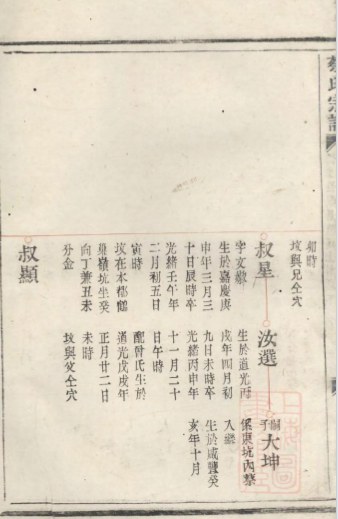 蔡氏宗譜
時
坟與兄仝穴
叔星
字文敏
生於嘉慶庚
申年三月三
十日辰時卒
光緒壬午年
二月初五日
寅時
坟在水
嶺坑坐癸
向丁兼丑未
分金
汝選
生於道光丙
戌年四月初
九日未時卒
光緒丙申年
十一月二十
日午時
配曾氏生於
道光戊戌年
正月廿二日
未時
坟與父仝穴
嗣子
大坤
係東坑內蔡
入繼
生於咸豐癸
亥年十月
叔顯